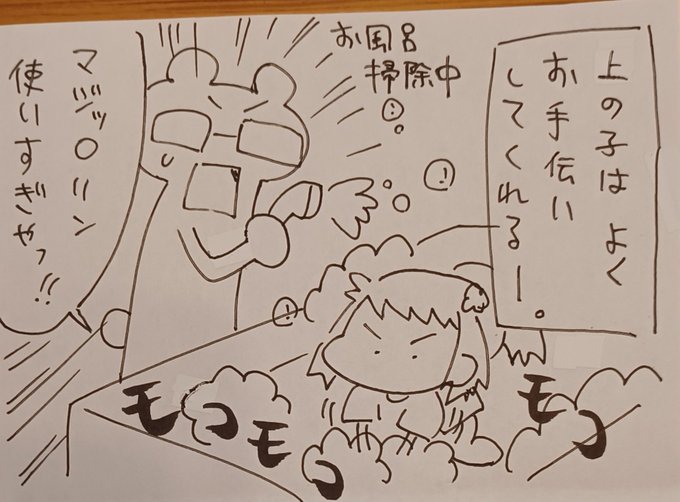 上の子は よく
お手伝い
してくれるー。
お風呂
掃除中
マジッ〇リン
使いすぎやっ!!
モコモコ
モコ